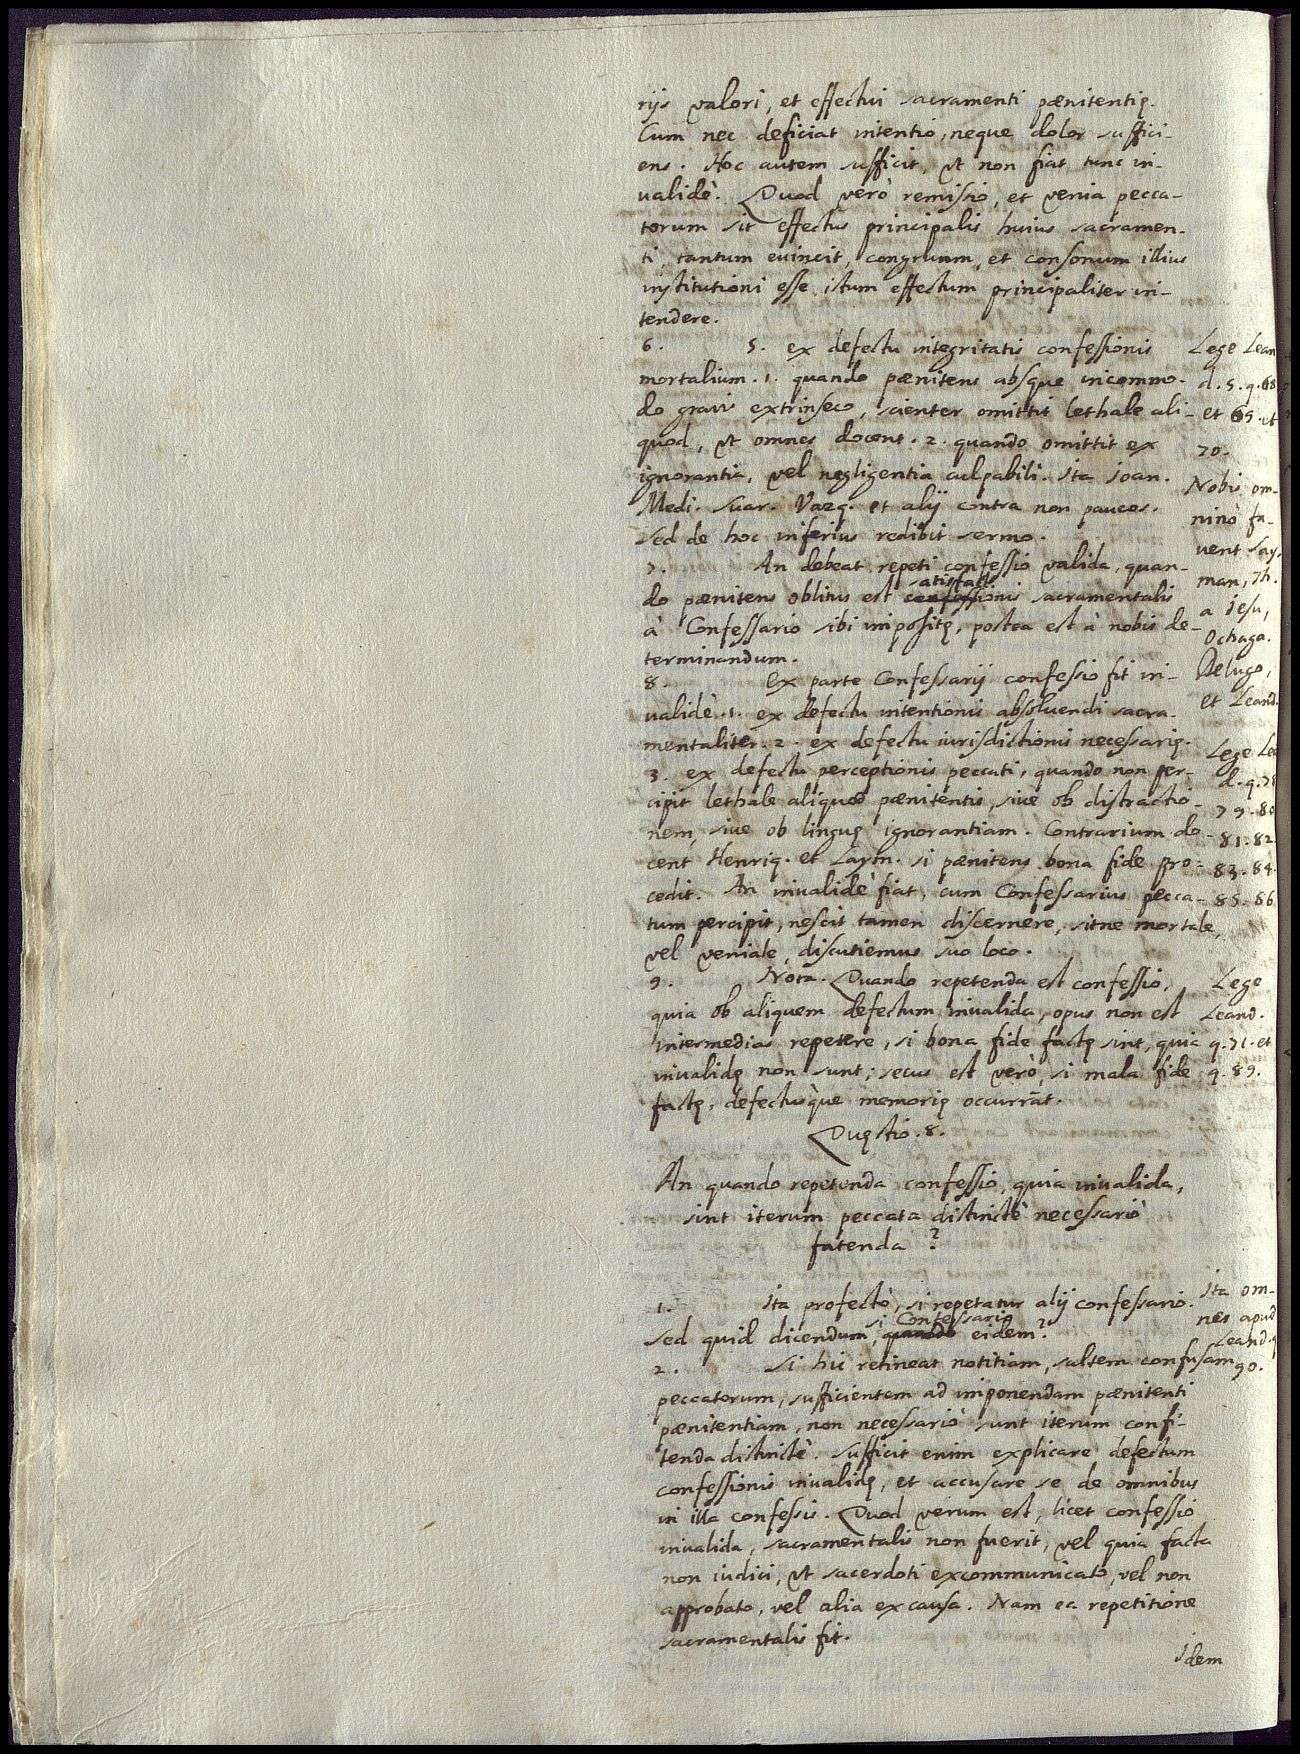 rijs valori, et effectui sacramenti pœnitentię.
Cum nec deficiat intentio, neque dolor suffici-
ens. Hoc autem sufficit, vt non fiat tunc in-
validè. Quod verò remissio, et venia pecca-
torum sit effectus principalis huius sacramen-
ti, tantum euincit, congruum, et consonum illius
institutioni esse istum effectum principaliter in-
tendere.
6. 5. ex defectu integritatis confessionis
mortalium. 1. quando pœnitens absque incommo-
do graui extrinseco, scienter omittit lethale ali-
quod, vt omnes docent. 2. quando omittit ex
ignorantia, vel negligentia culpabili. Ita Joan.
Medi. Suar. Vazq. et alij contra non paucos.
Sed de hoc inferius redibit sermo.
Lege Lean
d. 5. q. 68
et 69. et
70.
Nobis om-
ninò fa-
uent Lay-
man, Th.
a Jesu,
Ochaga.
Delugo,
et Leand.
7. An debeat repeti confessio valida, quan-
satisfacti
do pœnitens oblitus est confessionis sacramentalis
à Confessario sibi impositę, postea est à nobis de-
terminandum.
8. Ex parte Confessarij confessio fit in-
validè. 1. ex defectu intentionis absoluendi sacra-
mentaliter. 2. ex defectu iurisdictionis necessarię.
3. ex defectu perceptionis peccati, quando non per-
cipit lethale aliquod pœnitentis, siue ob distractio-
nem, siue ob linguę ignorantiam. Contrarium do-
cent Henriq. et Laym. si pœnitens bona fide pro-
cedit. An inualidè fiat, cum Confessarius pecca-
tum percipit, nescit tamen discernere, sitne mortale,
vel veniale, discutiemus suo loco.
Lege Lea
d. q. 78
79. 80
81. 82.
83. 84.
85. 86
9. Nota. Quando repetenda est confessio,
quia ob aliquem defectum inualida, opus non est
intermedias repetere, si bona fide factę sint, quia
inualidę non sunt; secus est verò, si mala fide
factę, defectusque memorię occurrāt.
Lege
Leand.
q. 71. et
q. 89.
Quęstio. 8.
An quando repetenda confessio, quia inualida,
sint iterum peccata distinctè necessariò
fatenda?
1. Ita profectò, si repetatur alij confessario.
si Confessario
Sed quid dicendum, quando eidem?
Ita om-
nes apud
Leand. q
90.
2. Si hic retineat notitiam, saltem confusam
peccatorum, sufficientem ad imponendam pœnitenti
pœnitentiam, non necessariò sunt iterum confi-
tenda distinctè. Sufficit enim explicare defectum
confessionis inualidę, et accusare se de omnibus
in illa confessis. Quod verum est, licet confessio
inualida, sacramentalis non fuerit, vel quia facta
non iudici, vt sacerdoti excommunicato, vel non
approbato, vel alia ex causa. Nam ea repetitione
sacramentalis fit.
Idem